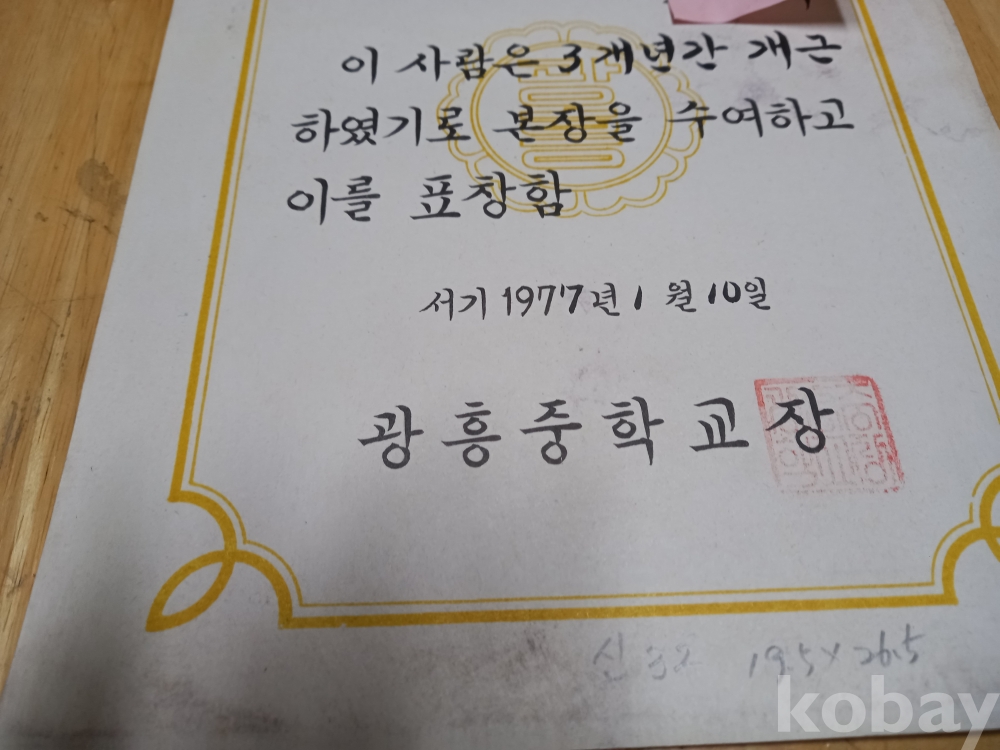 이 사람은 3개년간 개근
하였기로 본장을 수여하고
이를 표창함
서기 1977년 1월 10일
광흥중학교장
신32 19.5×26.5
kobay